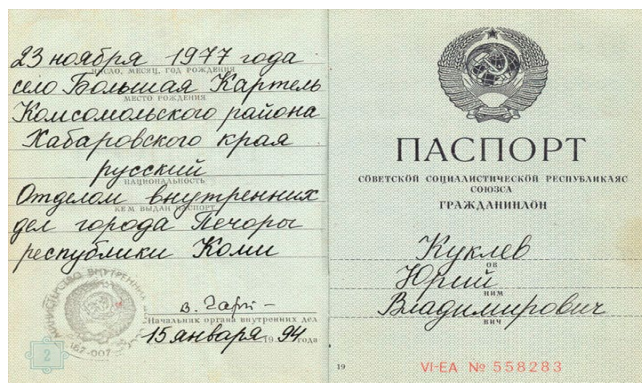 23 ноября 1977 года
ЧИСЛО, МЕСЯЦ, ГОД РОЖДЕНИЯ
село Большая Картель
МЕСТО РОЖДЕНИЯ
Комсомольского района
Хабаровского края
русский
НАЦИОНАЛЬНОСТЬ
Отделом внутренних
КЕМ ВЫДАН ПАСПОРТ
дел города Печоры
республики Коми
Начальник органа внутренних дел
15 января 1994 года
2
ПАСПОРТ
СОВЕТСКОЙ СОЦИАЛИСТИЧЕСКОЙ РЕСПУБЛИКАЯС
СОЮЗСА
ГРАЖДАНИНЛОН
Куклев
ОВ
Юрий
НИМ
Владимирович
ВИЧ
19
VI-ЕА № 558283